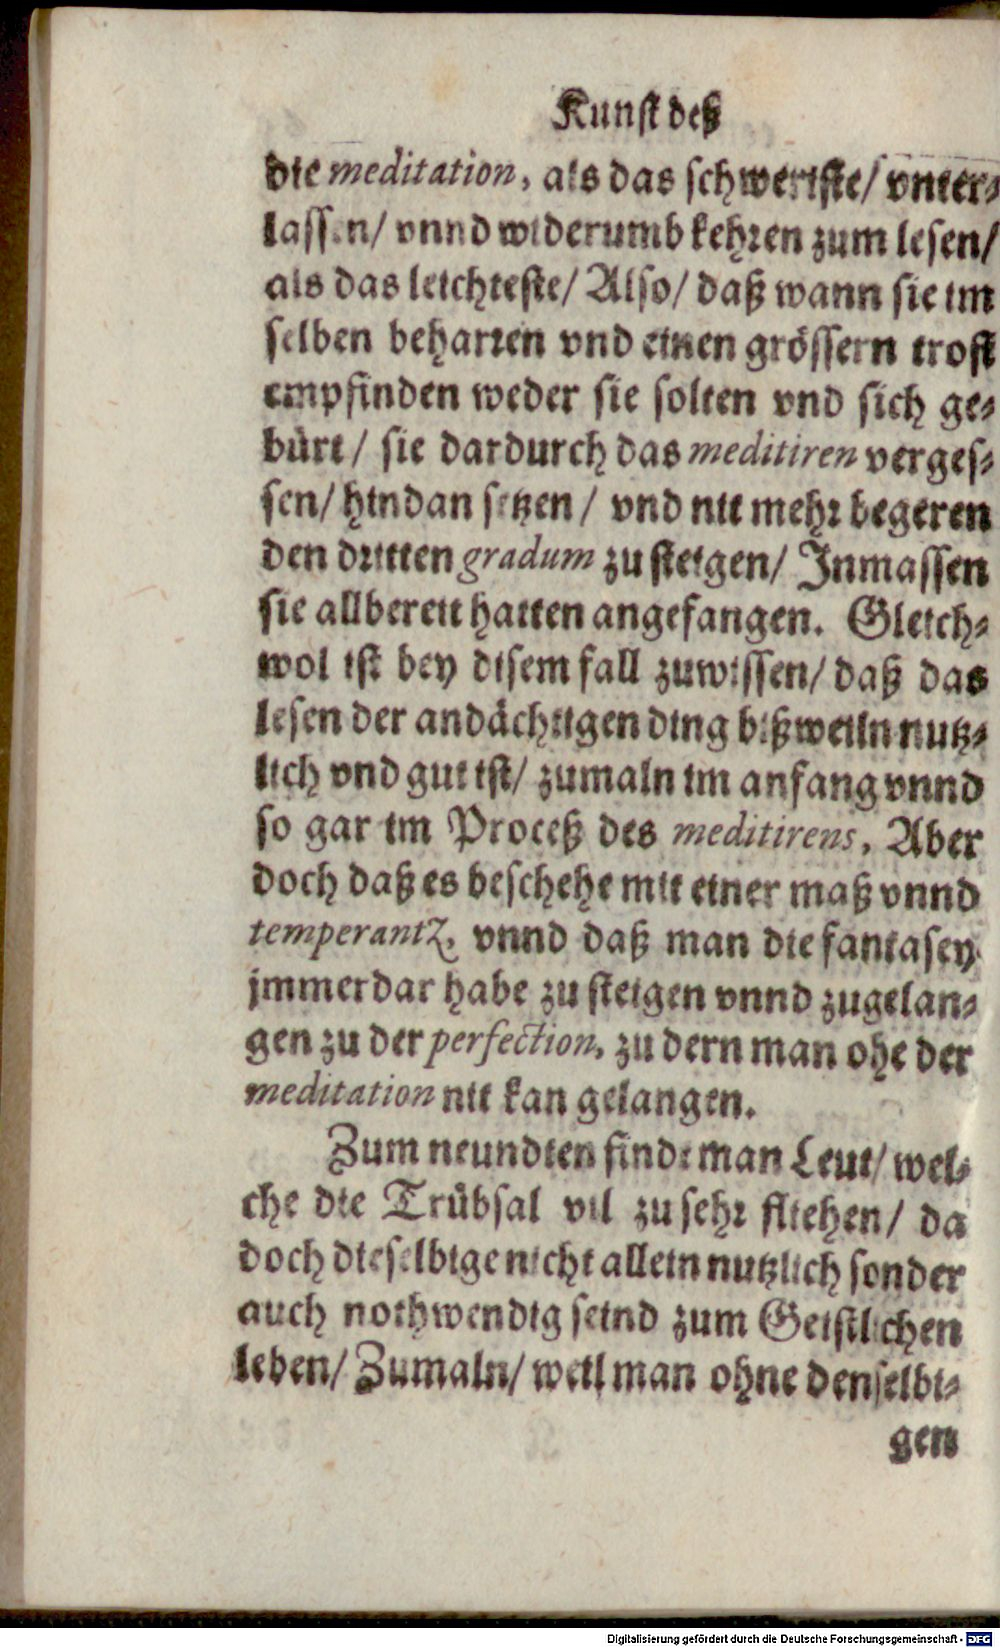 Kunst deß
die meditation, als das schweriste/ vnter-
lassen/ vnnd widerumb kehren zum lesen/
als das leichteste/ Also/ daß wann sie im
selben beharren vnd einen grössern trost
empfinden weder sie solten vnd sich ge-
bürt/ sie dardurch das meditiren verges-
sen/ hindan setzen/ vnd nit mehr begeren
den dritten gradum zu steigen/ Inmassen
sie allbereit hatten angefangen. Gleich-
wol ist bey disem fall zuwissen/ daß das
lesen der andächtigen ding bißweiln nutz-
lich vnd gut ist/ zumaln im anfang vnnd
so gar im Proceß des meditirens, Aber
doch daß es beschehe mit einer maß vnnd
temperantz, vnnd daß man die fantasey
jmmerdar habe zu steigen vnnd zugelan-
gen zu der perfection, zu dern man ohe der
meditation nit kan gelangen.
Zum neundten findt man Leut/ wel-
che die Trübsal vil zu sehr fliehen/ da
doch dieselbige nicht allein nutzlich sonder
auch nothwendig seind zum Geistlichen
leben/ Zumaln/ weil man ohne denselbi-
gen
Digitalisierung gefördert durch die Deutsche Forschungsgemeinschaft - DFG